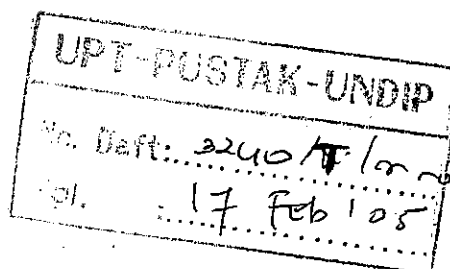 UPT-PUSTAK-UNDIP
No. Daft: 3240/T/
Tgl. : 17 Feb '05